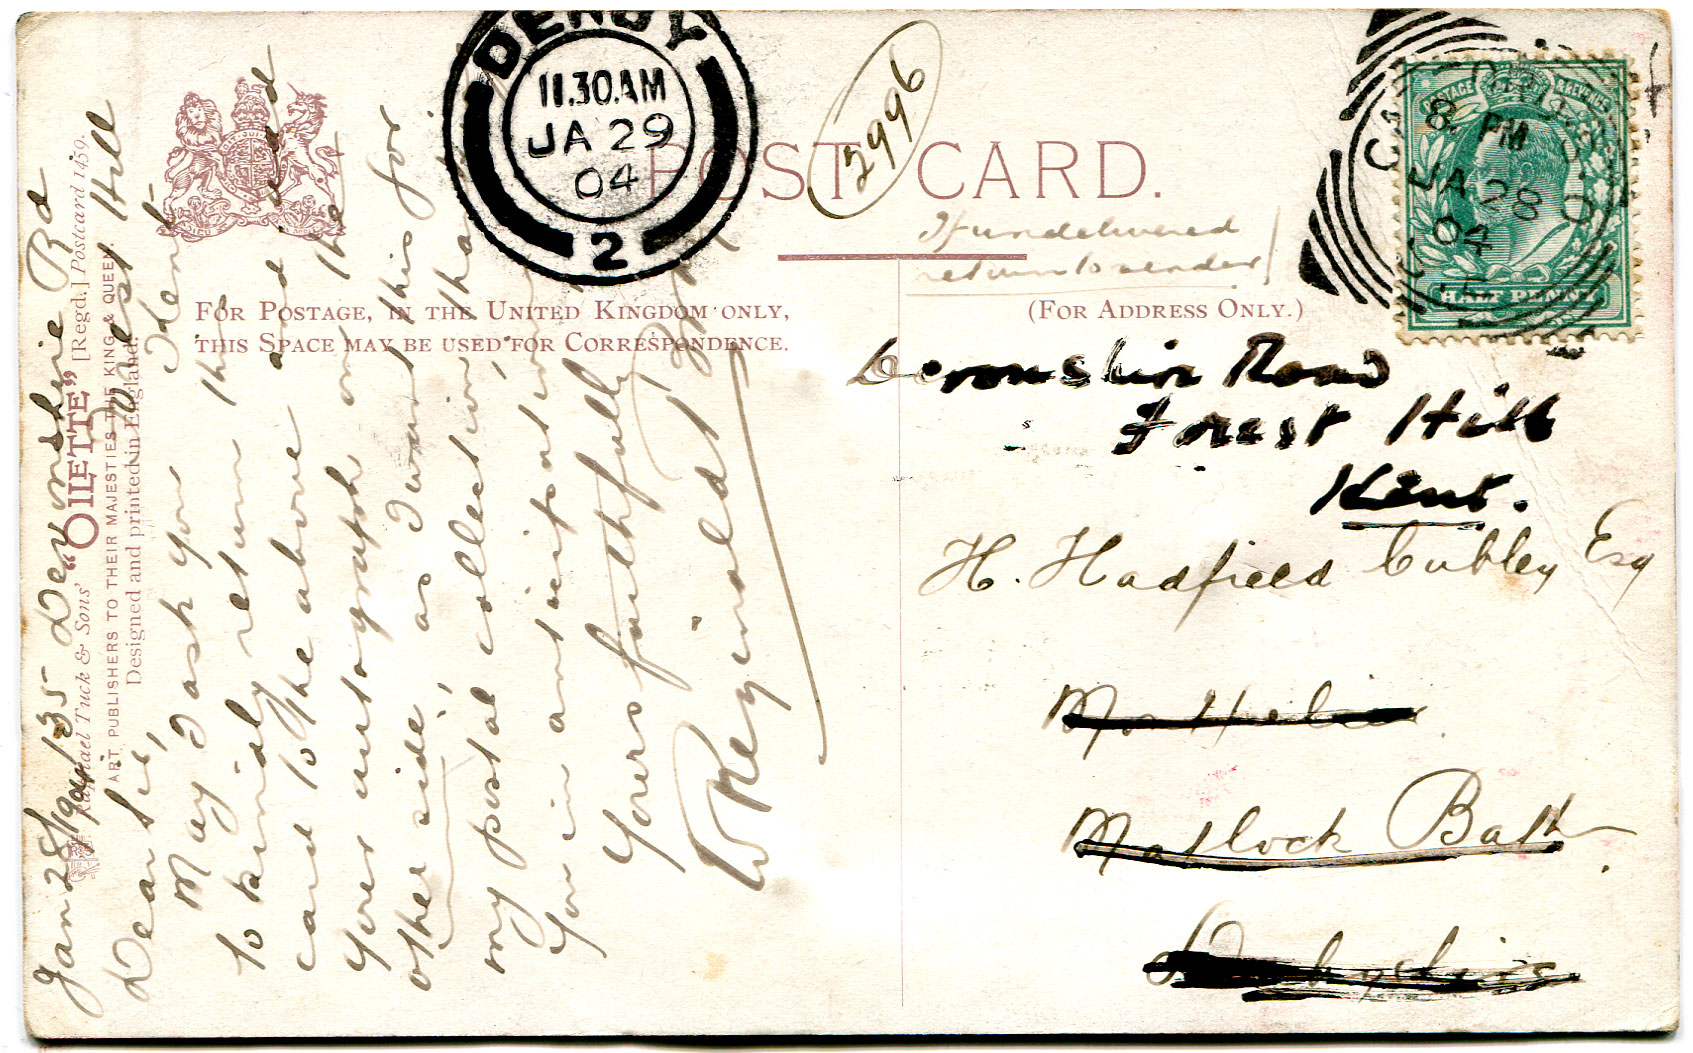 DERBY
11.30AM
JA 29
04
2
2996
POST CARD.
If undelivered
return to sender
FOR POSTAGE, IN THE UNITED KINGDOM ONLY,
THIS SPACE MAY BE USED FOR CORRESPONDENCE.
(FOR ADDRESS ONLY.)
POSTAGE & REVENUE
HALF PENNY
8. PM
JA 28
04
Devonshire Road
Forest Hill
Kent.
H. Hadfield Cubley Esq
Matlock Bath
Derbyshire
Raphael Tuck & Sons' "OILETTE" [Regd.] Postcard 1459.
ART PUBLISHERS TO THEIR MAJESTIES THE KING & QUEEN.
Designed and printed in England.
Jan 28/1904 135 Devonshire Rd
Forest Hill
Kent
Dear Sir,
May I ask you
to kindly return this
card to the above and add
your autograph on the
other side, as I want this for
my postal collection,
you in anticipation
Yours faithfully
W Reginald